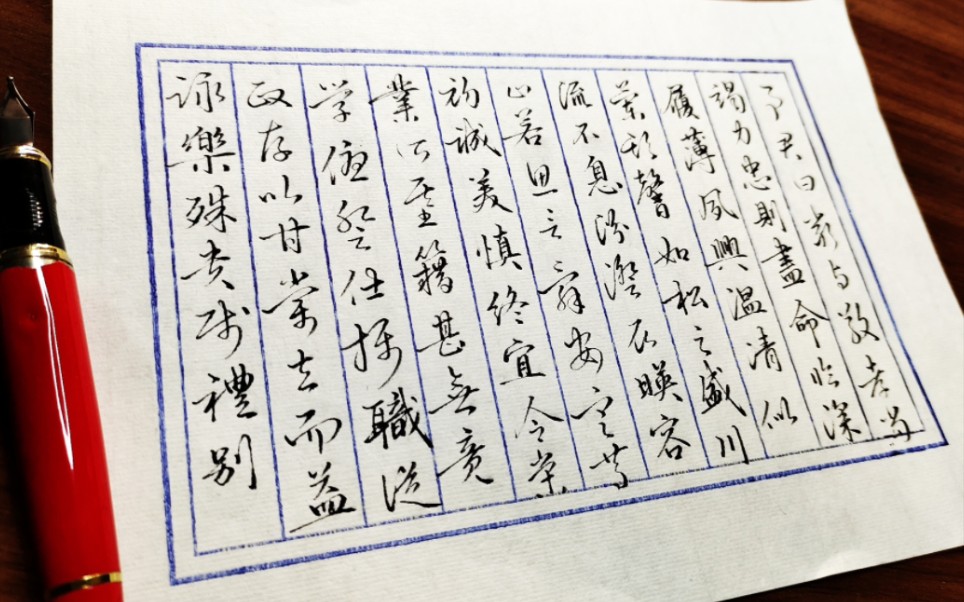 事君曰嚴与敬孝當
竭力忠則盡命临深
履薄夙興温清似
蘭斯馨如松之盛川
流不息汾澄取暎容
止若思言辞安定篤
初誠美慎終宜令榮
業所基籍甚無竟
学優登仕摄職從
政存以甘棠去而益
詠樂殊贵贱禮别